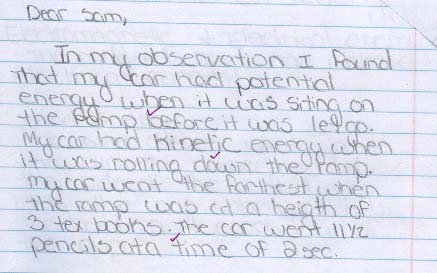 Dear Sam,
In my observation I found
that my car had potential
energy when it was siting on
the ramp before it was let go.
My car had kinetic energy when
it was rolling down the ramp.
my car went the farthest when
the ramp was at a heigth of
3 tex books. The car went 11 1/2
pencils at a time of 2 sec.